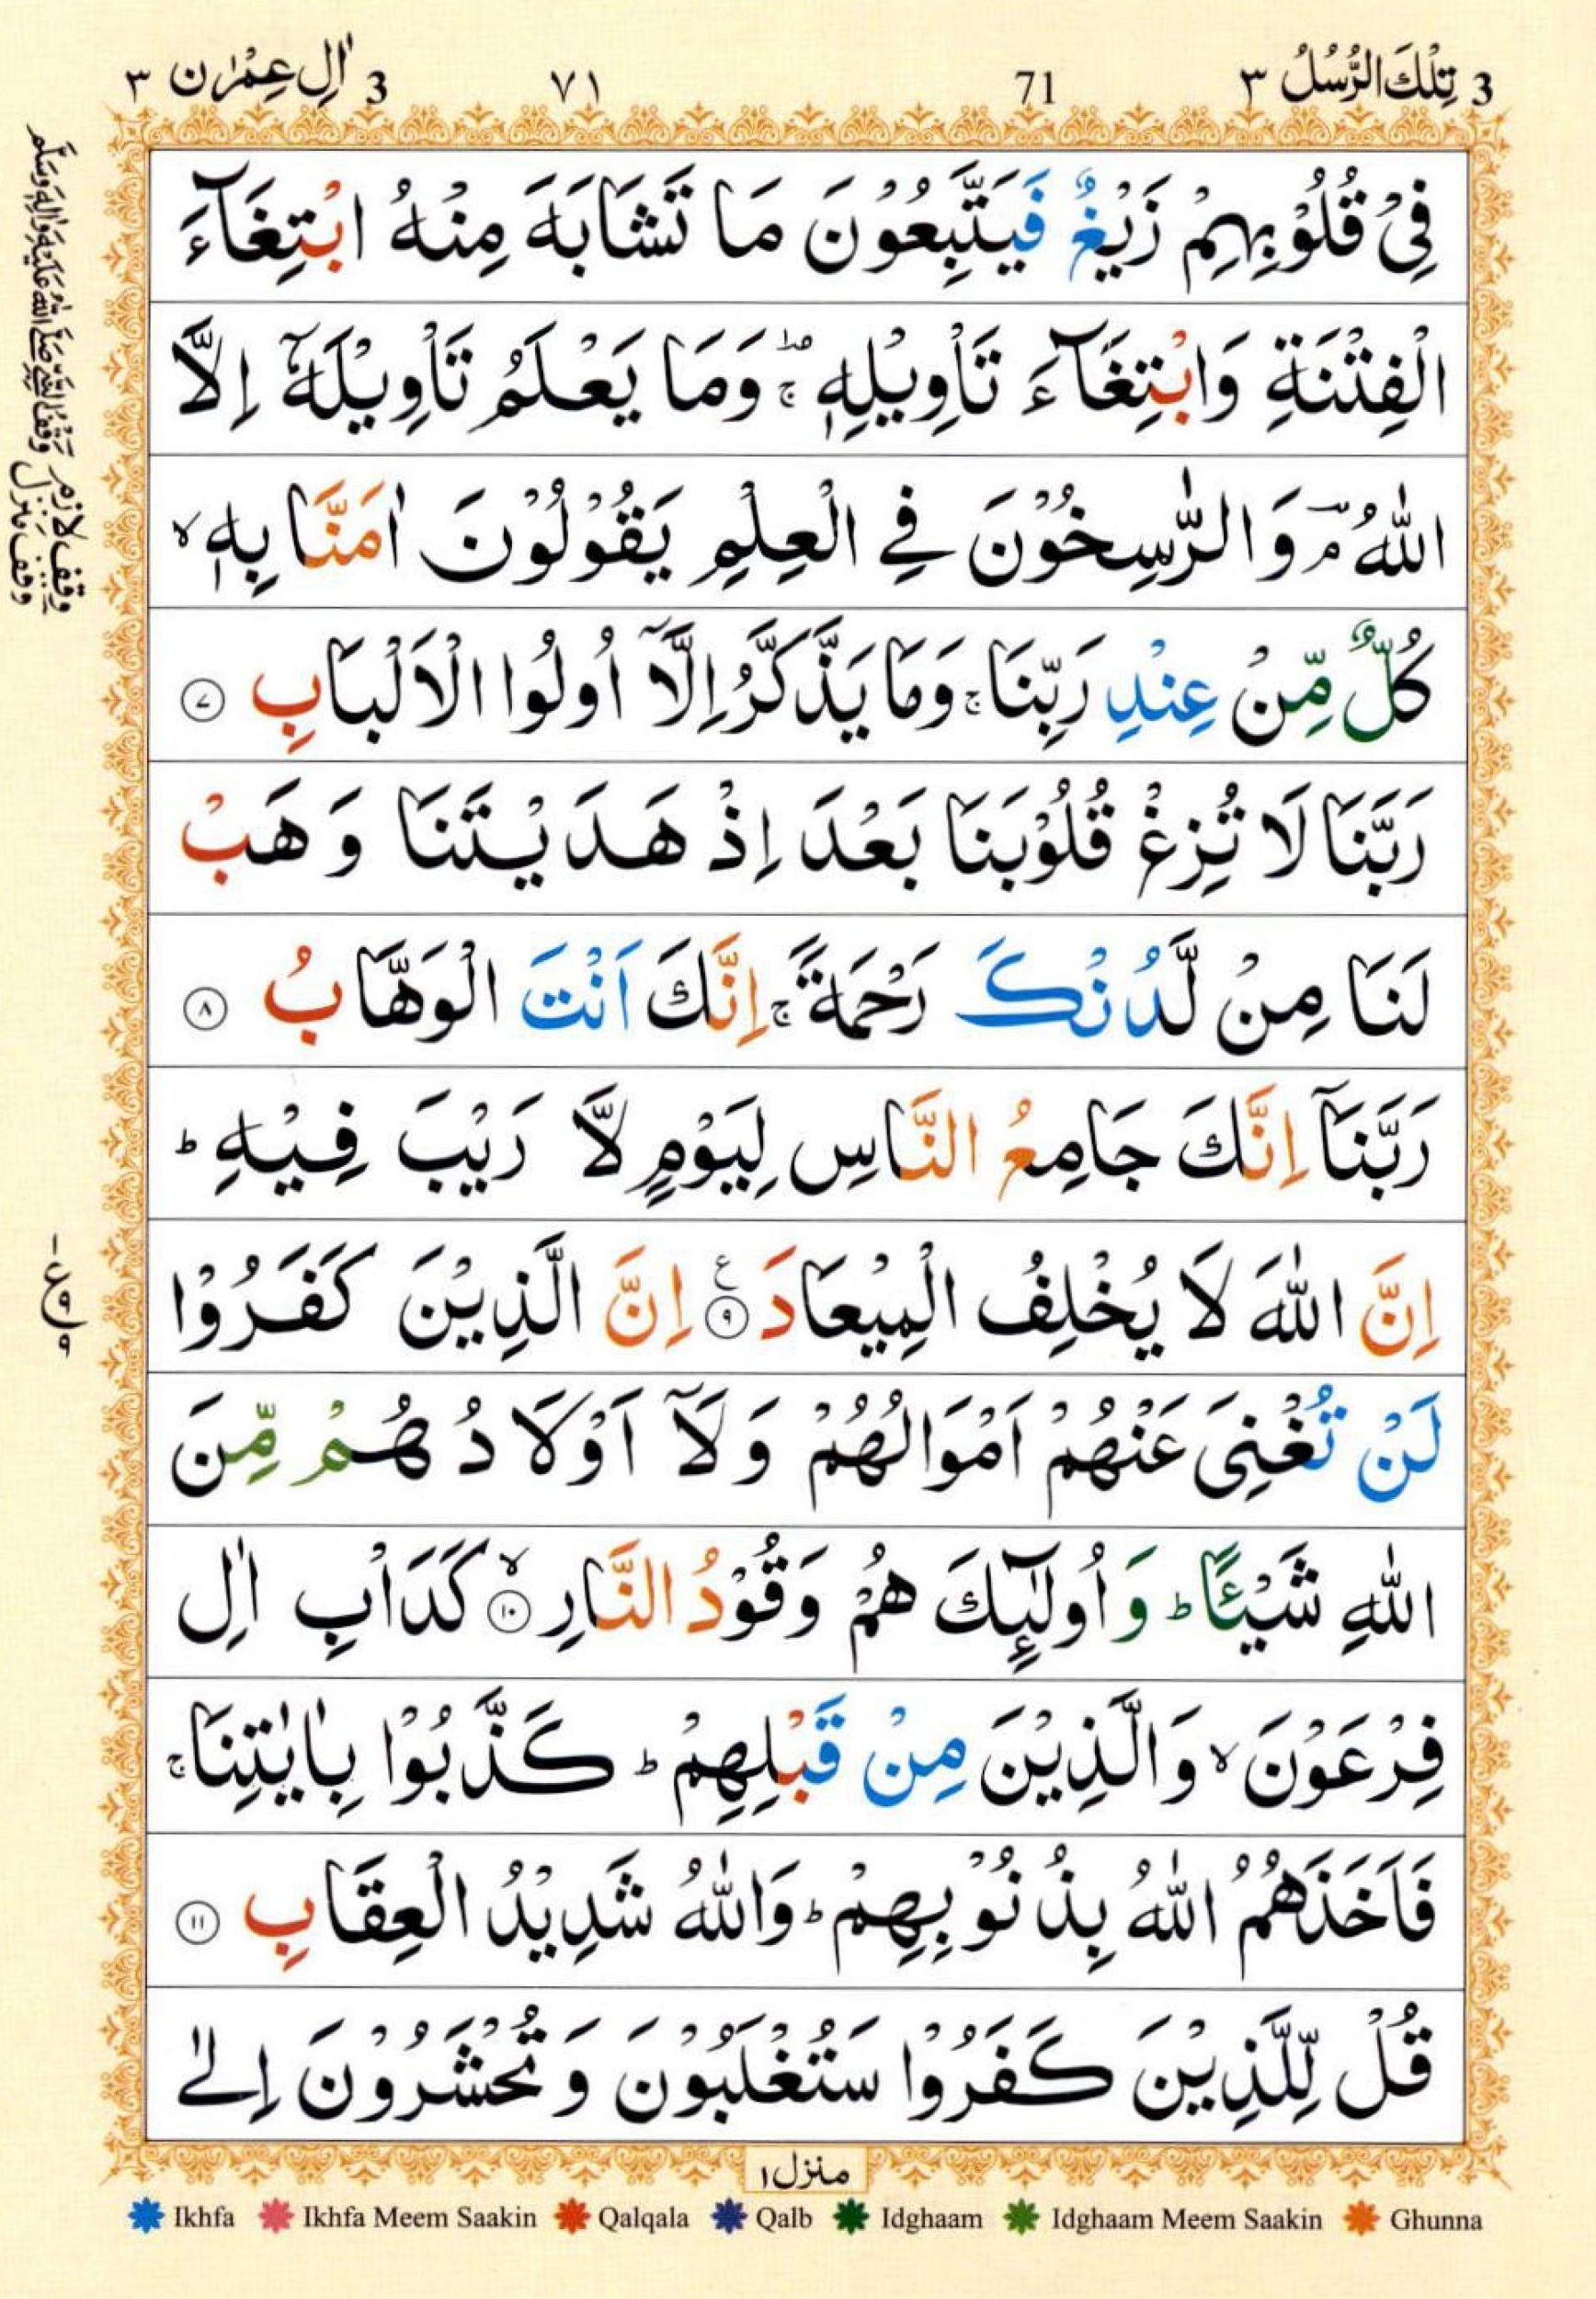 3 تِلْكَ الرُّسُلُ ٣
71
٧١
3 اٰلِ عِمْرٰن ٣
فِىْ قُلُوْبِهِمْ زَيْغٌ فَيَتَّبِعُوْنَ مَا تَشَابَهَ مِنْهُ ابْتِغَآءَ
الْفِتْنَةِ وَابْتِغَآءَ تَاْوِيْلِهٖ ۚ وَمَا يَعْلَمُ تَاْوِيْلَهٗۤ اِلَّا
اللّٰهُ ۘ وَالرّٰسِخُوْنَ فِى الْعِلْمِ يَقُوْلُوْنَ اٰمَنَّا بِهٖ ۙ
كُلٌّ مِّنْ عِنْدِ رَبِّنَا ۚ وَمَا يَذَّكَّرُ اِلَّاۤ اُولُوا الْاَلْبَابِ ٧
رَبَّنَا لَا تُزِغْ قُلُوْبَنَا بَعْدَ اِذْ هَدَيْتَنَا وَهَبْ
لَنَا مِنْ لَّدُنْكَ رَحْمَةً ۚ اِنَّكَ اَنْتَ الْوَهَّابُ ٨
رَبَّنَاۤ اِنَّكَ جَامِعُ النَّاسِ لِيَوْمٍ لَّا رَيْبَ فِيْهِ ؕ
اِنَّ اللّٰهَ لَا يُخْلِفُ الْمِيْعَادَ ٩ ع اِنَّ الَّذِيْنَ كَفَرُوْا
لَنْ تُغْنِىَ عَنْهُمْ اَمْوَالُهُمْ وَلَاۤ اَوْلَادُهُمْ مِّنَ
اللّٰهِ شَيْئًا ؕ وَاُولٰٓئِكَ هُمْ وَقُوْدُ النَّارِ ۙ ١٠ كَدَاْبِ اٰلِ
فِرْعَوْنَ ۙ وَالَّذِيْنَ مِنْ قَبْلِهِمْ ؕ كَذَّبُوْا بِاٰيٰتِنَا ۚ
فَاَخَذَهُمُ اللّٰهُ بِذُنُوْبِهِمْ ؕ وَاللّٰهُ شَدِيْدُ الْعِقَابِ ١١
قُلْ لِّلَّذِيْنَ كَفَرُوْا سَتُغْلَبُوْنَ وَتُحْشَرُوْنَ اِلٰى
وقف النبي صلى الله عليه واله وسلم
وقف لازم
وقف منزل
ع ٩ ٩
منزل ١
Ikhfa Ikhfa Meem Saakin Qalqala Qalb Idghaam Idghaam Meem Saakin Ghunna